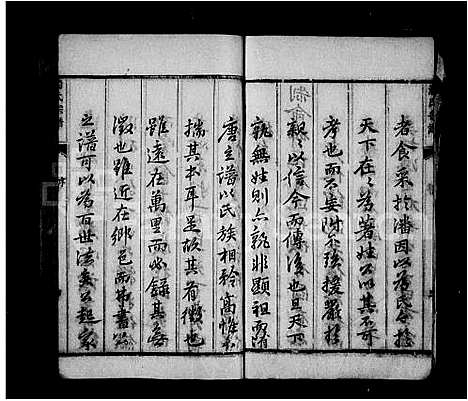 者食采於潘因以為氏今
天下在在為著姓不以其不可
考也而不妄附
親以信今而傳後也且天下
孰無姓則亦孰非顯祖
唐之譜以氏族相矜高惟
其書耳是故其有徵也
雖遠在萬里而必錄其無
徵也雖近在鄉邑而弗書
之譜可以為百世法矣公起家